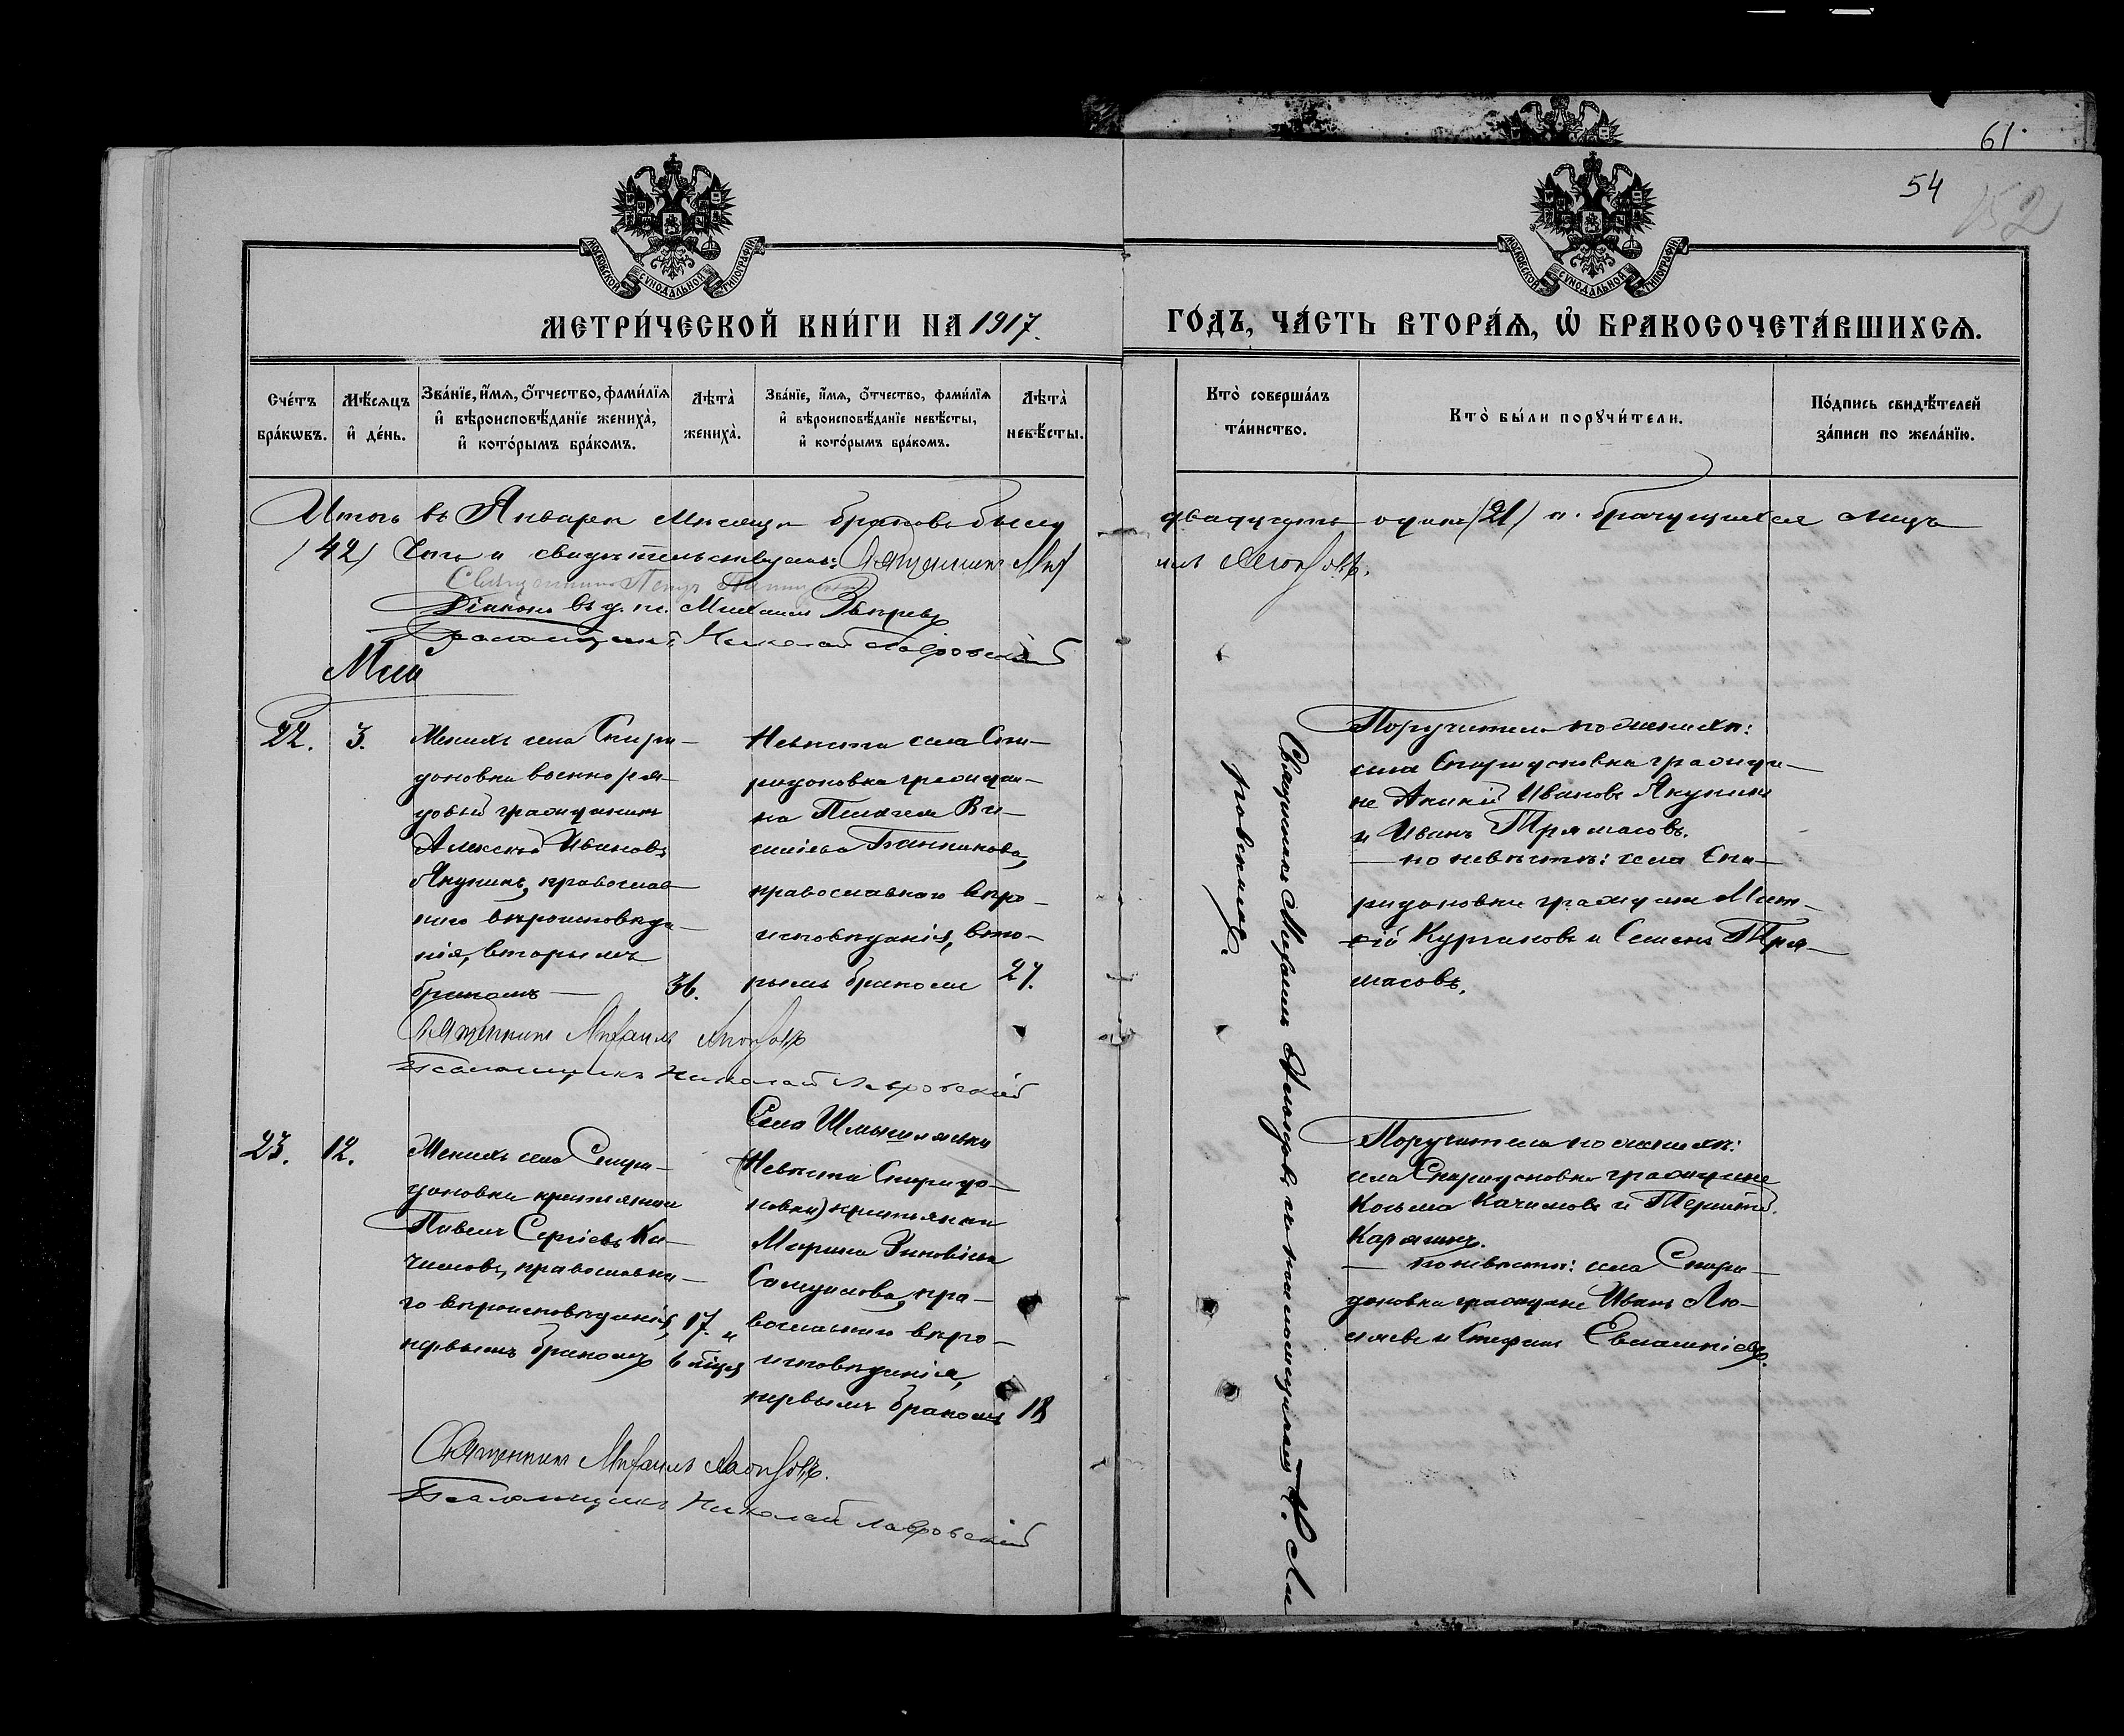 61.
54
152
МОСКОВСКОЙ СѴНОДАЛЬНОЙ ТИПОГРАФІИ
МОСКОВСКОЙ СѴНОДАЛЬНОЙ ТИПОГРАФІИ
МЕТРИ́ЧЕСКОЙ КНИ́ГИ НА 1917.
ГО́ДЪ, ЧА́СТЬ ВТОРА́Ѧ, Ѽ БРАКОСОЧЕТА́ВШИХСѦ.
Сче́тъ бра́кѡвъ.
Мѣ́сяцъ и́ де́нь.
Зва́нїе, и́мя, ѻ́тчество, фами́лїя
и́ вѣроисповѣ́данїе жениха̀,
и́ кото́рымъ бра́комъ.
Лѣта̀ жениха̀.
Зва́нїе, и́мя, ѻ́тчество, фами́лїя
и́ вѣроисповѣ́данїе невѣ́сты,
и́ кото́рымъ бра́комъ.
Лѣта̀ невѣ́сты.
Кто̀ соверша́лъ та́инство.
Кто̀ бы́ли порꙋчи́тели.
По́дпись свидѣ́телей за́писи по жела́нїю.
Итого въ Январѣ мѣсяцѣ браковъ было двадцать одинъ (21) и брачущихся лицъ
(42) Въ чемъ и свидѣтельствуемъ: Священникъ Михаилъ
Священникъ Петръ
Діаконъ въ д. пс. Михаилъ Звѣревъ
Псаломщикъ Николай Лавровскій
Май
22.
3.
Женихъ села Спири-
доновки военно ря-
довый гражданинъ
Алексѣй Ивановъ
Якунинъ, православ-
наго вѣроисповѣда-
нія, вторымъ
бракомъ —
36.
Невѣста села Спи-
ридоновки граждан-
ка Пелагея Ва-
силіева Банникова,
православнаго вѣро-
исповѣданія, вто-
рымъ бракомъ
27.
Поручители по женихѣ:
села Спиридоновки гражда-
не Аникій Ивановъ Якунинъ
и Иванъ Трямасовъ.
— по невѣстѣ: села Спи-
ридоновки граждане
Кургановъ и Семенъ Тря-
масовъ.
Священникъ Михаилъ
Псаломщикъ Николай Лавровскій
23.
12.
Женихъ села Спири-
доновки крестьянинъ
Павелъ Сергіевъ Ка-
чимовъ, православна-
го вѣроисповѣданія,
первымъ бракомъ
17. и
6 мѣся
Села Шмышляевки
(Невѣста Спиридо-
новки) крестьянка
Марина Зиновіева
Самуилова, пра-
вославнаго вѣро-
исповѣданія,
первымъ бракомъ
18
Поручители по женихѣ:
села Спиридоновки граждане
Козьма Качимовъ и Терентій
Карягинъ.
— по невѣстѣ: села Спири-
доновки граждане Иванъ
и Стефанъ
Священникъ Михаилъ
Псаломщикъ Николай Лавровскій
Священникъ Михаилъ съ псаломщикомъ Н. Лав-
ровскимъ.